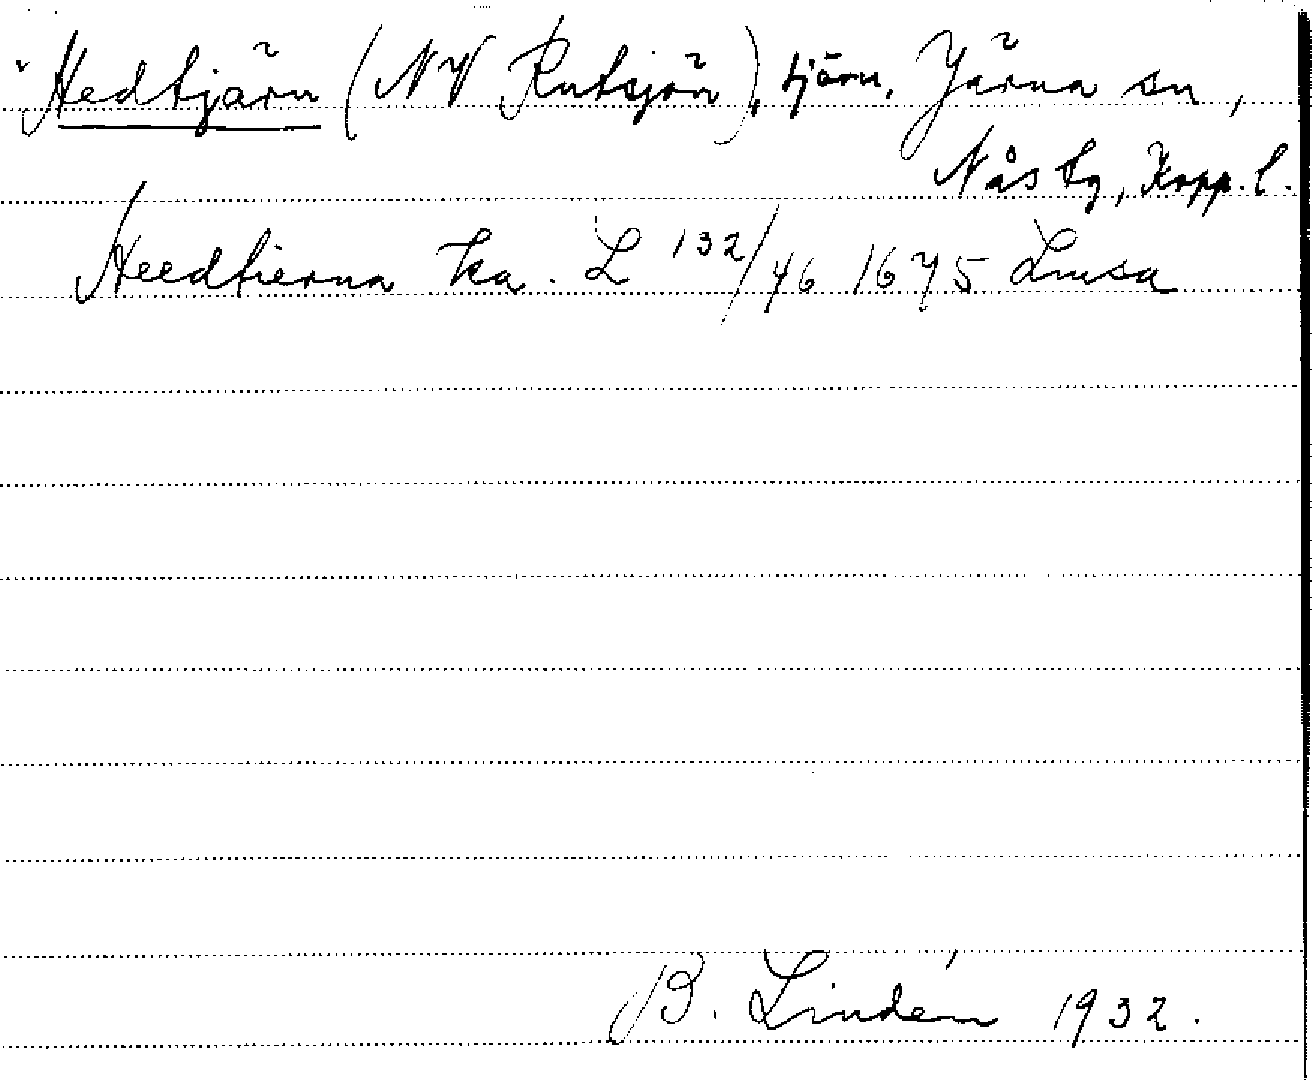 Hedtjärn (NV Rutsjön), tjärn, Järna sn,
Nås tg, Kopp. l.
Heedtierna ka. L 132/46 1675 Limsa
B. Lindén 1932.